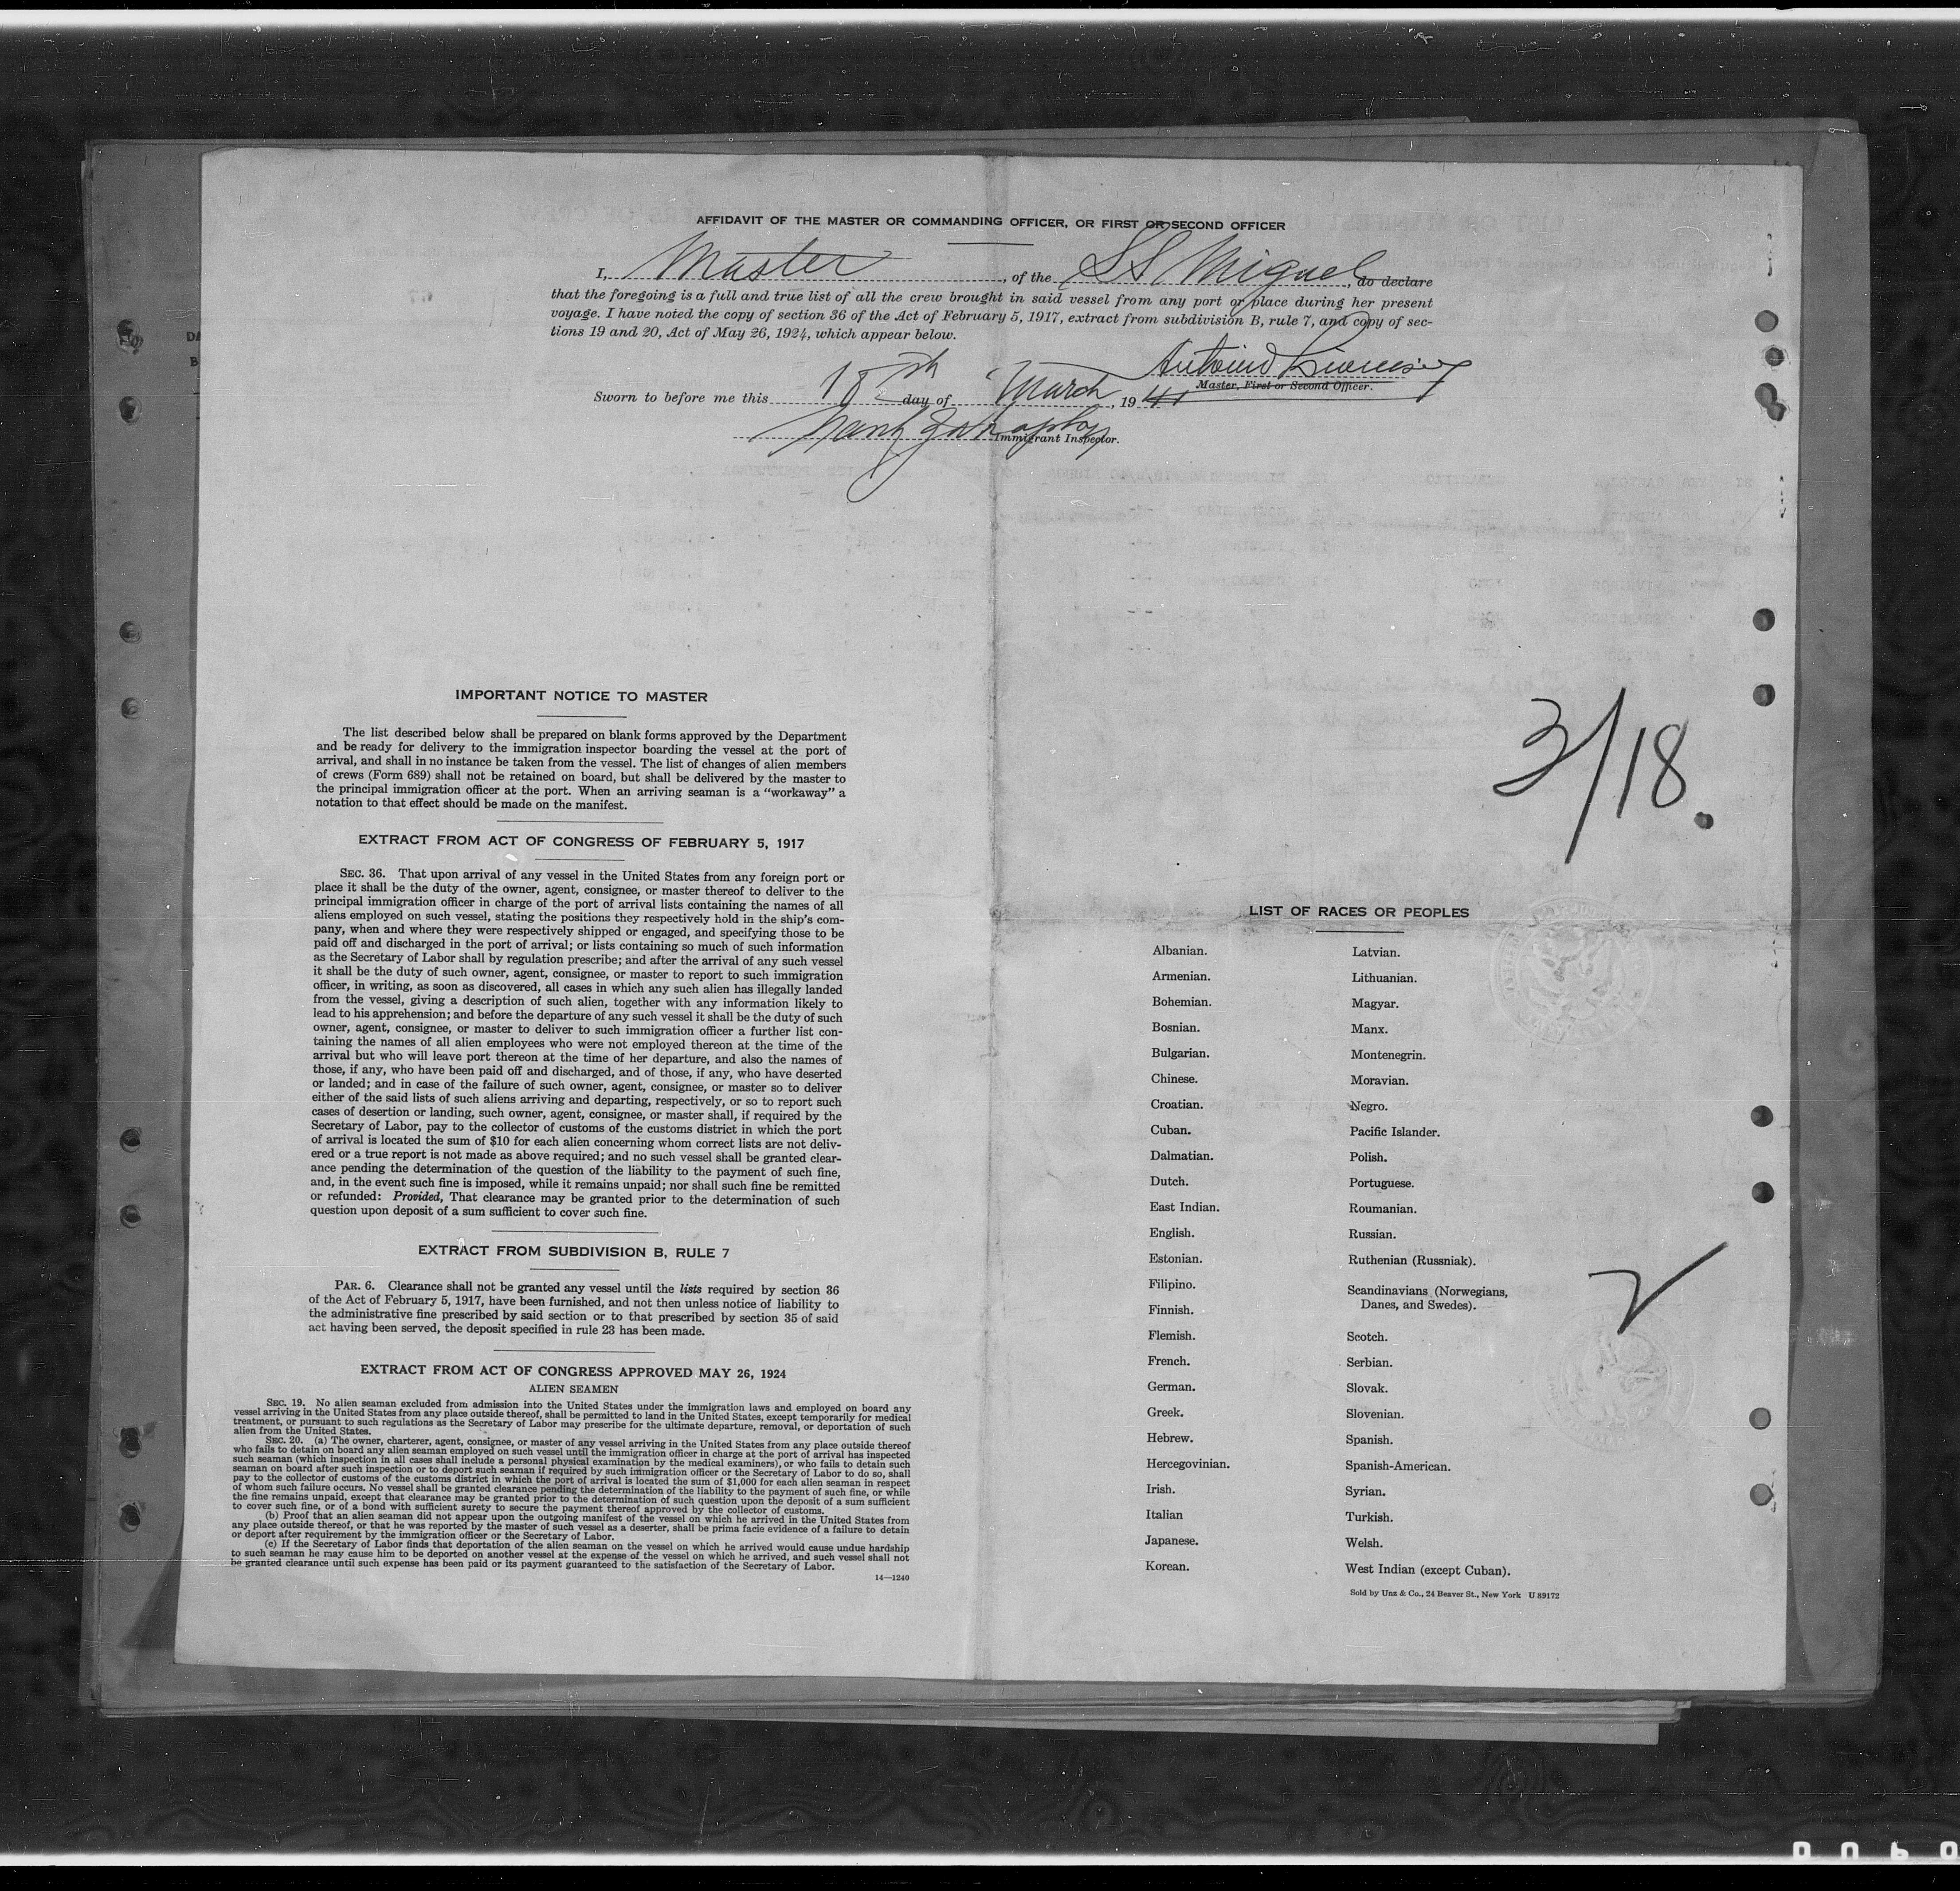 AFFIDAVIT OF THE MASTER OR COMMANDING OFFICER, OR FIRST OR SECOND OFFICER
I, Master, of the SS Miguel, do declare
that the foregoing is a full and true list of all the crew brought in said vessel from any port or place during her present
voyage. I have noted the copy of section 36 of the Act of February 5, 1917, extract from subdivision B, rule 7, and copy of sec-
tions 19 and 20, Act of May 26, 1924, which appear below.
Master, First or Second Officer.
Sworn to before me this 18th day of March, 1941
Immigrant Inspector.
IMPORTANT NOTICE TO MASTER
The list described below shall be prepared on blank forms approved by the Department
and be ready for delivery to the immigration inspector boarding the vessel at the port of
arrival, and shall in no instance be taken from the vessel. The list of changes of alien members
of crews (Form 689) shall not be retained on board, but shall be delivered by the master to
the principal immigration officer at the port. When an arriving seaman is a "workaway" a
notation to that effect should be made on the manifest.
EXTRACT FROM ACT OF CONGRESS OF FEBRUARY 5, 1917
SEC. 36. That upon arrival of any vessel in the United States from any foreign port or
place it shall be the duty of the owner, agent, consignee, or master thereof to deliver to the
principal immigration officer in charge of the port of arrival lists containing the names of all
aliens employed on such vessel, stating the positions they respectively hold in the ship's com-
pany, when and where they were respectively shipped or engaged, and specifying those to be
paid off and discharged in the port of arrival; or lists containing so much of such information
as the Secretary of Labor shall by regulation prescribe; and after the arrival of any such vessel
it shall be the duty of such owner, agent, consignee, or master to report to such immigration
officer, in writing, as soon as discovered, all cases in which any such alien has illegally landed
from the vessel, giving a description of such alien, together with any information likely to
lead to his apprehension; and before the departure of any such vessel it shall be the duty of such
owner, agent, consignee, or master to deliver to such immigration officer a further list con-
taining the names of all alien employees who were not employed thereon at the time of the
arrival but who will leave port thereon at the time of her departure, and also the names of
those, if any, who have been paid off and discharged, and of those, if any, who have deserted
or landed; and in case of the failure of such owner, agent, consignee, or master so to deliver
either of the said lists of such aliens arriving and departing, respectively, or so to report such
cases of desertion or landing, such owner, agent, consignee, or master shall, if required by the
Secretary of Labor, pay to the collector of customs of the customs district in which the port
of arrival is located the sum of $10 for each alien concerning whom correct lists are not deliv-
ered or a true report is not made as above required; and no such vessel shall be granted clear-
ance pending the determination of the question of the liability to the payment of such fine,
and, in the event such fine is imposed, while it remains unpaid; nor shall such fine be remitted
or refunded: Provided, That clearance may be granted prior to the determination of such
question upon deposit of a sum sufficient to cover such fine.
EXTRACT FROM SUBDIVISION B, RULE 7
PAR. 6. Clearance shall not be granted any vessel until the lists required by section 36
of the Act of February 5, 1917, have been furnished, and not then unless notice of liability to
the administrative fine prescribed by said section or to that prescribed by section 35 of said
act having been served, the deposit specified in rule 23 has been made.
EXTRACT FROM ACT OF CONGRESS APPROVED MAY 26, 1924
ALIEN SEAMEN
SEC. 19. No alien seaman excluded from admission into the United States under the immigration laws and employed on board any
vessel arriving in the United States from any place outside thereof, shall be permitted to land in the United States, except temporarily for medical
treatment, or pursuant to such regulations as the Secretary of Labor may prescribe for the ultimate departure, removal, or deportation of such
alien from the United States.
SEC. 20. (a) The owner, charterer, agent, consignee, or master of any vessel arriving in the United States from any place outside thereof
who fails to detain on board any alien seaman employed on such vessel until the immigration officer in charge at the port of arrival has inspected
such seaman (which inspection in all cases shall include a personal physical examination by the medical examiners), or who fails to detain such
seaman on board after such inspection or to deport such seaman if required by such immigration officer or the Secretary of Labor to do so, shall
pay to the collector of customs of the customs district in which the port of arrival is located the sum of $1,000 for each alien seaman in respect
of whom such failure occurs. No vessel shall be granted clearance pending the determination of the liability to the payment of such fine, or while
the fine remains unpaid, except that clearance may be granted prior to the determination of such question upon the deposit of a sum sufficient
to cover such fine, or of a bond with sufficient surety to secure the payment thereof approved by the collector of customs.
(b) Proof that an alien seaman did not appear upon the outgoing manifest of the vessel on which he arrived in the United States from
any place outside thereof, or that he was reported by the master of such vessel as a deserter, shall be prima facie evidence of a failure to detain
or deport after requirement by the immigration officer or the Secretary of Labor.
(c) If the Secretary of Labor finds that deportation of the alien seaman on the vessel on which he arrived would cause undue hardship
to such seaman he may cause him to be deported on another vessel at the expense of the vessel on which he arrived, and such vessel shall not
be granted clearance until such expense has been paid or its payment guaranteed to the satisfaction of the Secretary of Labor.
14—1240
3/18.
LIST OF RACES OR PEOPLES
Albanian.
Armenian.
Bohemian.
Bosnian.
Bulgarian.
Chinese.
Croatian.
Cuban.
Dalmatian.
Dutch.
East Indian.
English.
Estonian.
Filipino.
Finnish.
Flemish.
French.
German.
Greek.
Hebrew.
Hercegovinian.
Irish.
Italian
Japanese.
Korean.
Latvian.
Lithuanian.
Magyar.
Manx.
Montenegrin.
Moravian.
Negro.
Pacific Islander.
Polish.
Portuguese.
Roumanian.
Russian.
Ruthenian (Russniak).
Scandinavians (Norwegians,
Danes, and Swedes).
Scotch.
Serbian.
Slovak.
Slovenian.
Spanish.
Spanish-American.
Syrian.
Turkish.
Welsh.
West Indian (except Cuban).
Sold by Unz & Co., 24 Beaver St., New York U 89172